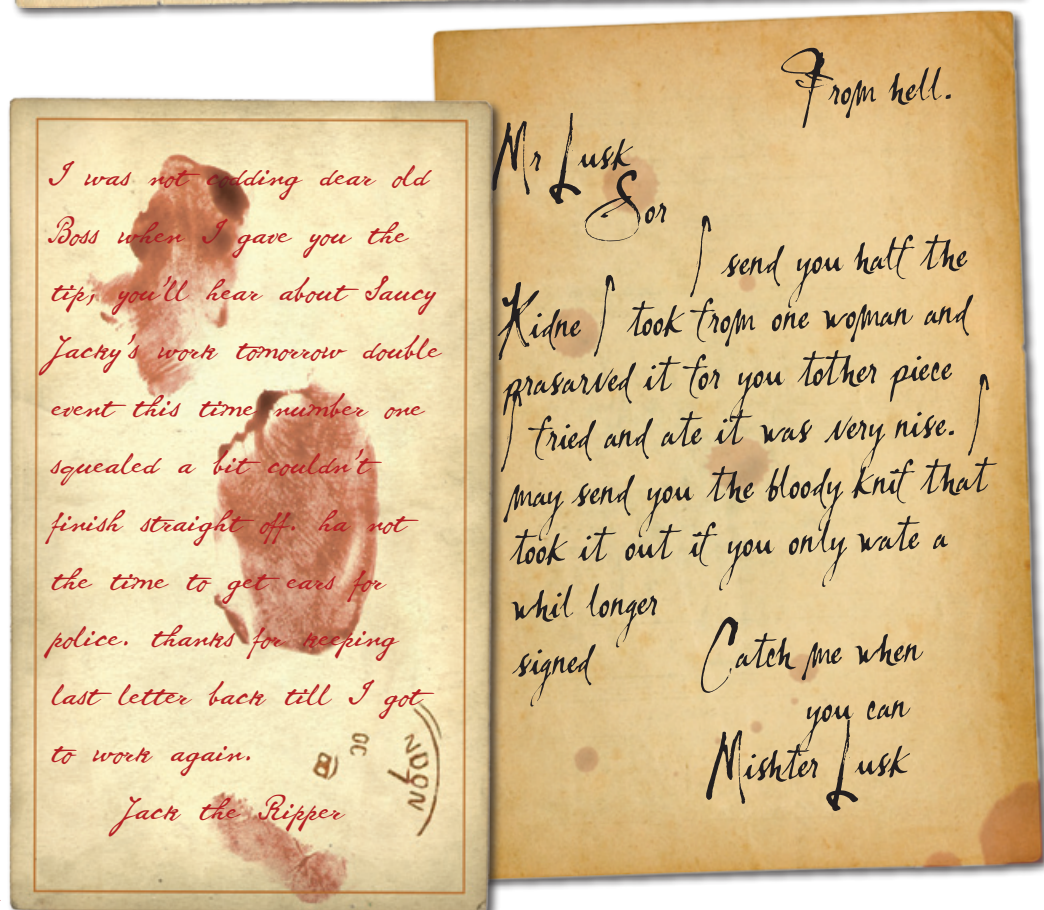 I was not codding dear old
Boss when I gave you the
tip, you'll hear about Saucy
Jacky's work tomorrow double
event this time number one
squealed a bit couldn't
finish straight off. ha not
the time to get ears for
police. thanks for keeping
last letter back till I got
to work again.
Jack the Ripper
From hell.
Mr Lusk
Sor
I send you half the
Kidne I took from one woman and
prasarved it for you tother piece
I fried and ate it was very nise. I
may send you the bloody knif that
took it out if you only wate a
whil longer
signed
Catch me when
you can
Mishter Lusk